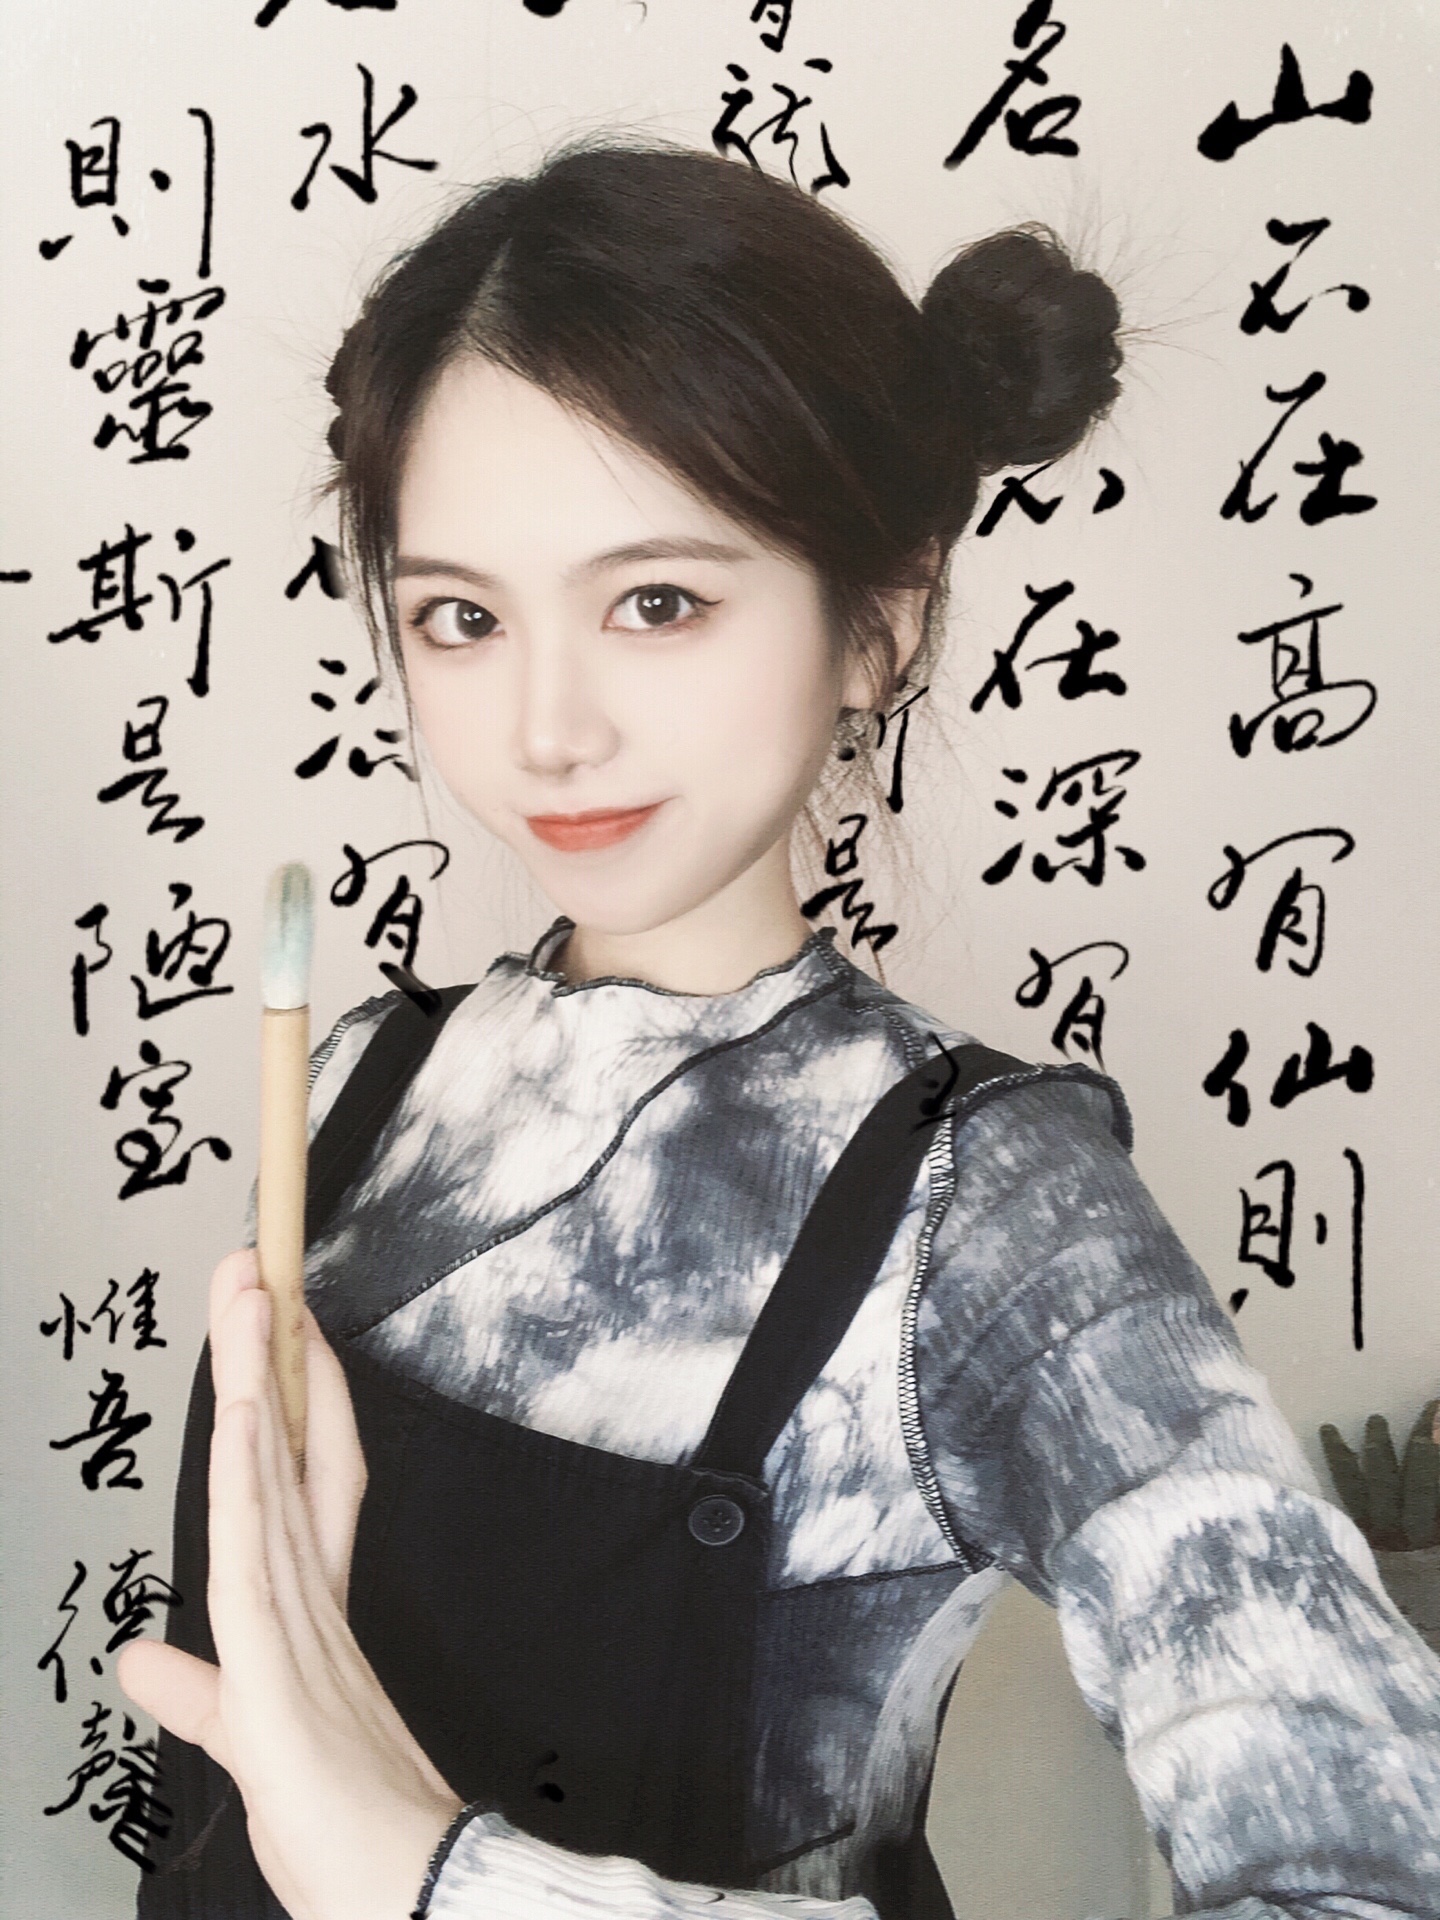 山不在高有仙則
名
心在深有
龍
斯是
水
有
則靈斯是陋室
惟吾德馨